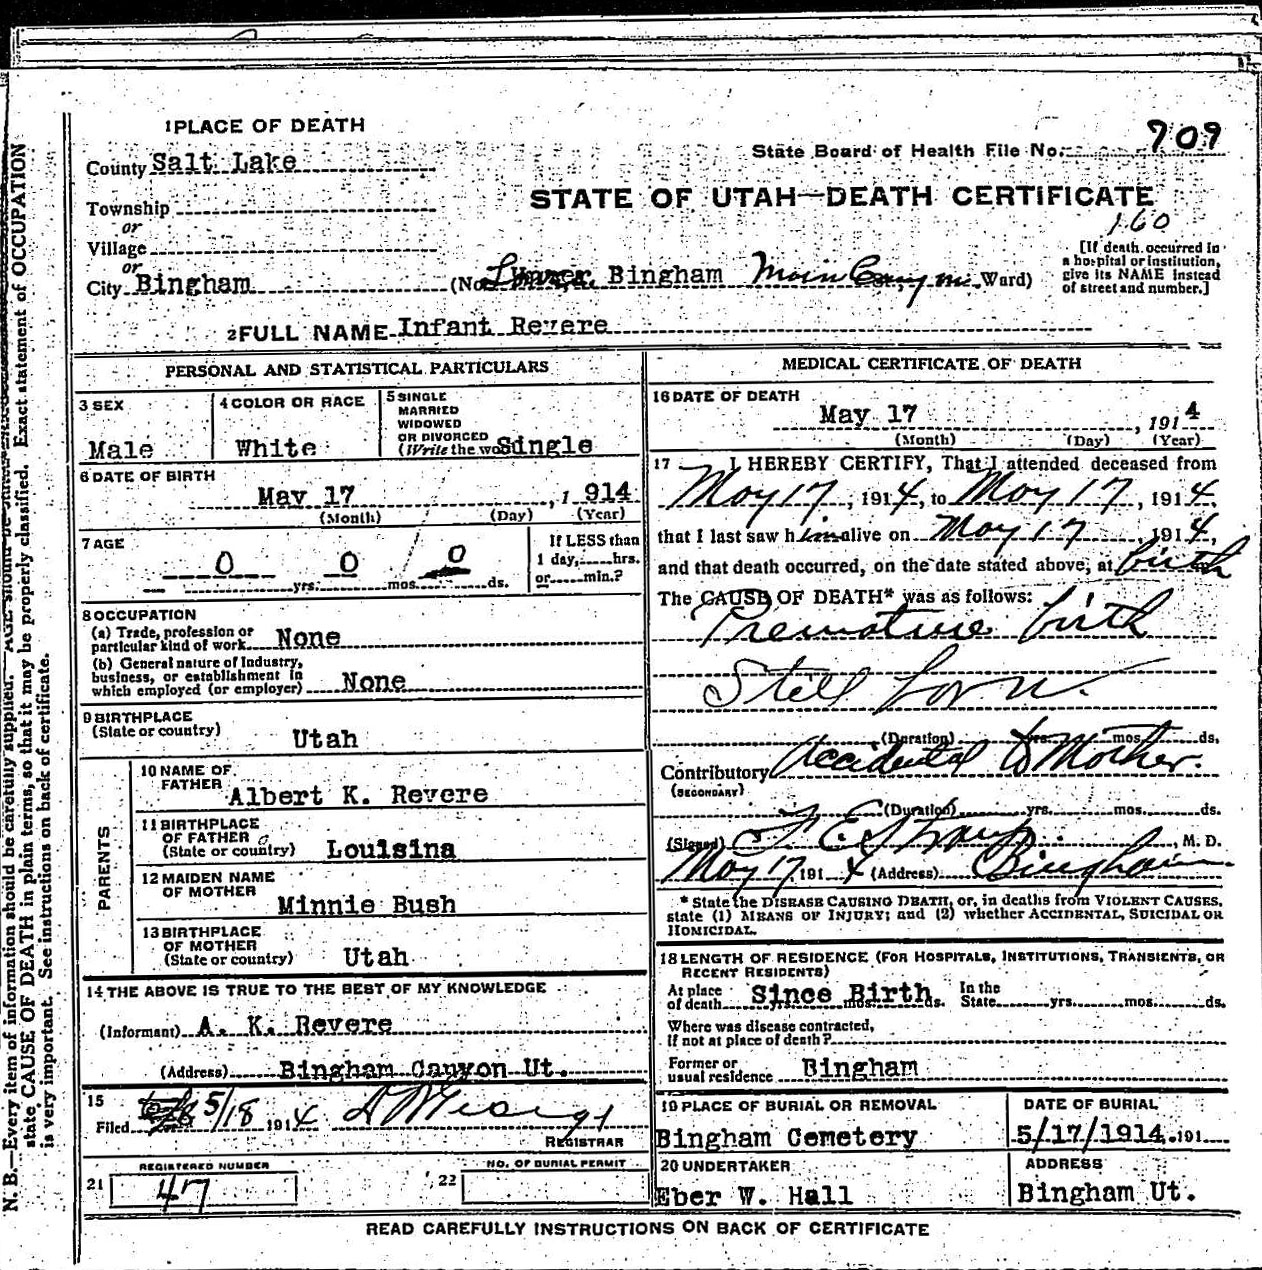 1 PLACE OF DEATH
County Salt Lake
State Board of Health File No. 709
Township
STATE OF UTAH—DEATH CERTIFICATE
160
or
Village
or
City Bingham (No. Bingham Main Canyon Ward)
[If death occurred in
a hospital or institution,
give its NAME instead
of street and number.]
2 FULL NAME Infant Revere
PERSONAL AND STATISTICAL PARTICULARS
3 SEX
Male
4 COLOR OR RACE
White
5 SINGLE
MARRIED
WIDOWED
OR DIVORCED
(Write the wo Single
6 DATE OF BIRTH
May 17, 1 914
(Month) (Day) (Year)
7 AGE
0 yrs. 0 mos. 0 ds.
If LESS than
1 day, hrs.
or min.?
8 OCCUPATION
(a) Trade, profession or
particular kind of work None
(b) General nature of Industry,
business, or establishment in
which employed (or employer) None
9 BIRTHPLACE
(State or country) Utah
PARENTS
10 NAME OF
FATHER Albert K. Revere
11 BIRTHPLACE
OF FATHER
(State or country) Louisina
12 MAIDEN NAME
OF MOTHER Minnie Bush
13 BIRTHPLACE
OF MOTHER
(State or country) Utah
14 THE ABOVE IS TRUE TO THE BEST OF MY KNOWLEDGE
(Informant) A. K. Revere
(Address) Bingham Canyon Ut.
15
Filed 5/18 1914
REGISTRAR
REGISTERED NUMBER
21 47
NO. OF BURIAL PERMIT
22
MEDICAL CERTIFICATE OF DEATH
16 DATE OF DEATH
May 17, 1914
(Month) (Day) (Year)
17 I HEREBY CERTIFY, That I attended deceased from
May 17, 1914, to May 17, 1914,
that I last saw him alive on May 17, 1914,
and that death occurred, on the date stated above, at birth
The CAUSE OF DEATH* was as follows:
Premature birth
Still born.
(Duration) yrs. mos. ds.
Contributory Accidental to Mother.
(SECONDARY)
(Duration) yrs. mos. ds.
(Signed) F. E. , M. D.
May 17 1914 (Address) Bingham
* State the DISEASE CAUSING DEATH, or, in deaths from VIOLENT CAUSES,
state (1) MEANS OF INJURY; and (2) whether ACCIDENTAL, SUICIDAL OR
HOMICIDAL.
18 LENGTH OF RESIDENCE (FOR HOSPITALS, INSTITUTIONS, TRANSIENTS, OR
RECENT RESIDENTS)
At place
of death Since Birth yrs. mos. ds. In the
State yrs. mos. ds.
Where was disease contracted,
If not at place of death?
Former or
usual residence Bingham
19 PLACE OF BURIAL OR REMOVAL
Bingham Cemetery
DATE OF BURIAL
5/17/1914. 191
20 UNDERTAKER
Eber W. Hall
ADDRESS
Bingham Ut.
READ CAREFULLY INSTRUCTIONS ON BACK OF CERTIFICATE
N. B.—Every item of information should be carefully supplied. AGE should be
state CAUSE OF DEATH in plain terms, so that it may be properly classified. Exact statement of OCCUPATION
is very important. See instructions on back of certificate.